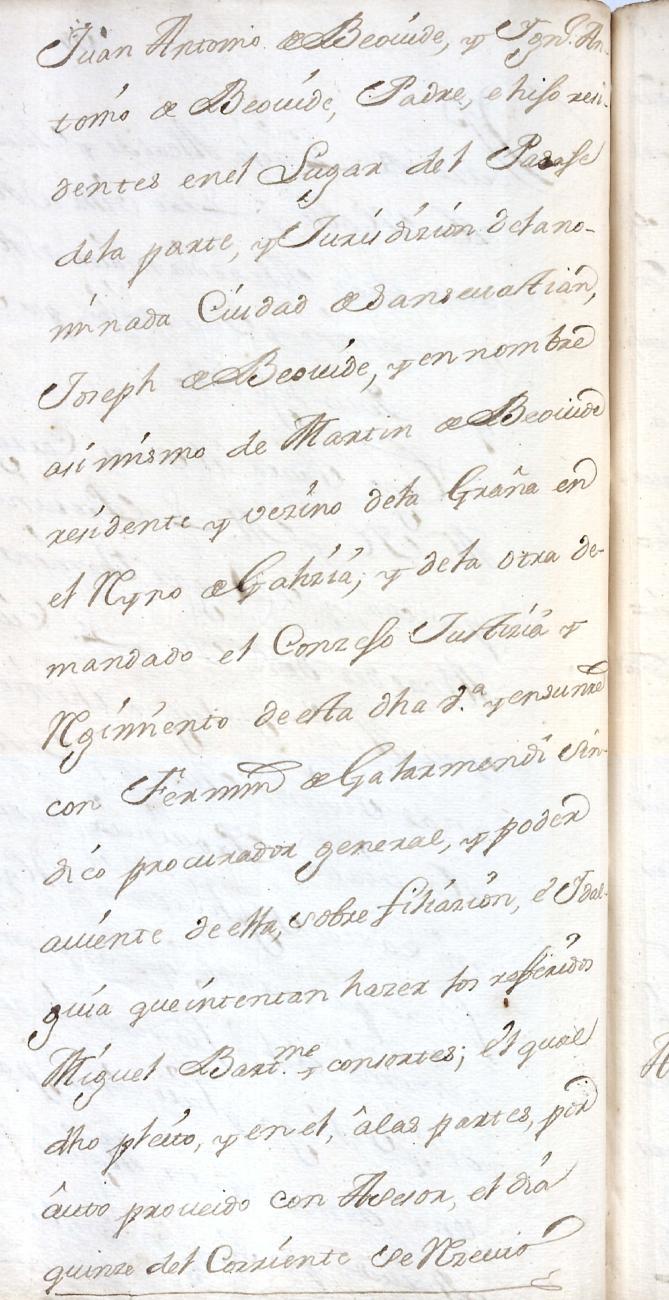 Juan Antonio de Beouide, y Ygn.º An-
tonio de Beouide, Padre, e hiso resi-
dentes enel Lugar del Pasaje
dela parte, y Jurisdizion delano-
minada Ciudad de Sanseuastian,
Joseph de Beouide, y en nombre
asi mismo de Martin de Beouide
residente y vezino dela Graña en
el Ryno de Galizia; y dela otra de-
mandado el Conzejo Justizia y
Rgimiento de esta dha v.ª y ensunre
con Fermin de Galarmendi Sin-
dico procurador general, y poder
auiente de ella, sobre filiazion, e Ydal-
guia que intentan hazer los referidos
Miguel Bart.me y consortes; el qual
dho pleito, y en el, a las partes, por
auto proueido con Asesor, el dia
quinze del Corriente Se Rzeuio